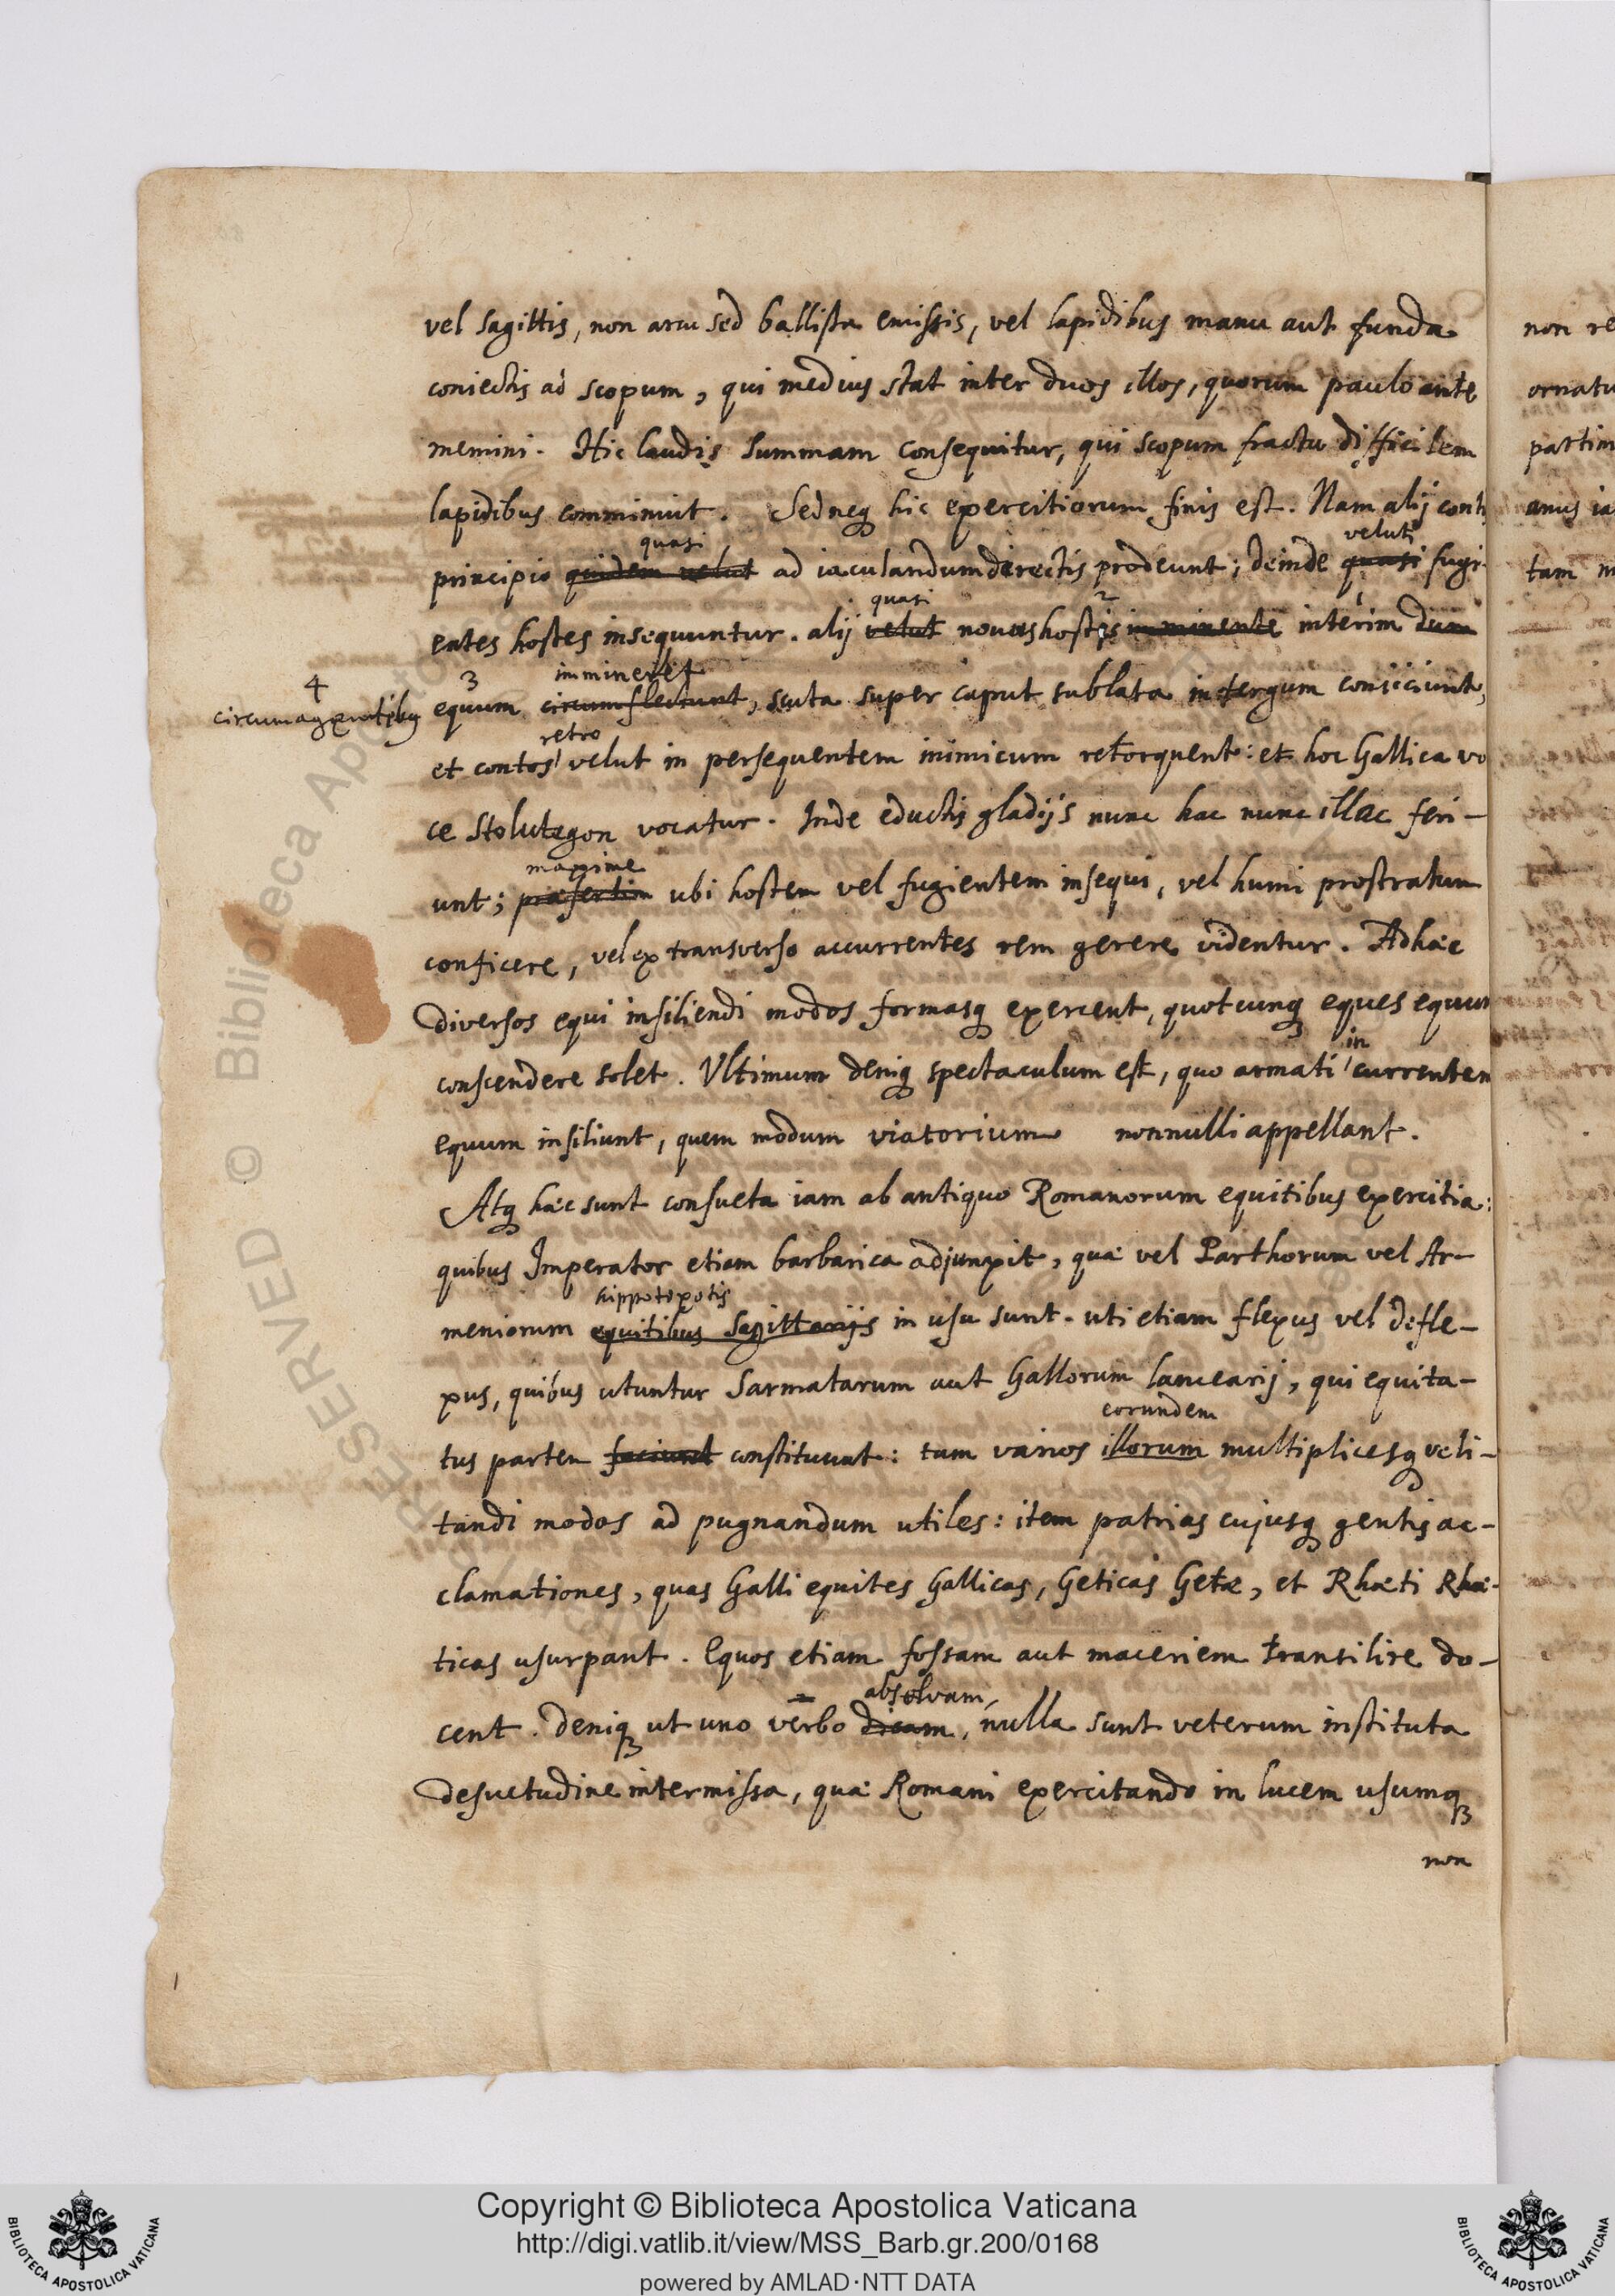 vel sagittis, non arcu sed ballista emissis, vel lapidibus manu aut funda
coniectis ad scopum, qui medius stat inter duos illos, quorum paulo ante
memini. Hic laudis summam consequitur, qui scopum fractu difficilem
lapidibus comminuit. Sed neq hic exercitiorum finis est. Nam alij contis
quasi
veluti
principio quidem velut ad iaculandum directis prodeunt; deinde quasi fugi-
quasi
2
1
entes hostes insequuntur. alij velut novus hostis imminente interim dum
4
3
immineret
circumagentibus
equum circumflectunt, scuta super caput sublata in tergum coniiciunt,
retro
et contos velut in persequentem inimicum retorquent: et hoc Gallica vo
ce Stolutegon vocatur. Inde eductis gladijs nunc hac nunc illac feri-
maxime
unt; praesertim ubi hostem vel fugientem insequi, vel humi prostratum
conficere, vel ex transverso accurrentes rem gerere videntur. Ad haec
diversos equi insiliendi modos formasq exercent, quotcunq eques equum
in
conscendere solet. Ultimum deniq spectaculum est, quo armati currentem
equum insiliunt, quem modum viatorium nonnulli appellant.
Atq haec sunt consueta iam ab antiquo Romanorum equitibus exercitia:
quibus Imperator etiam barbarica adjunxit, quae vel Parthorum vel Ar-
hippotoxotis
meniorum equitibus sagittarijs in usu sunt. uti etiam flexus vel defle-
xus, quibus utuntur Sarmatarum aut Gallorum lancearij, qui equita-
eorundem
tus partem faciunt constituunt: tum varios illorum multiplicesq veli-
tandi modos ad pugnandum utiles: item patrias cujusq gentis ac-
clamationes, quas Galli equites Gallicas, Geticas Getae, et Rhaeti Rhae-
ticas usurpant. Equos etiam fossam aut maceriem transilire do-
absolvam
cent. Deniq ut uno verbo dicam, nulla sunt veterum instituta
desuetudine intermissa, quae Romani exercitando in lucem usumq
non
non re
ornatu
partim
anus ia
tam
PRESERVED © Biblioteca
Copyright © Biblioteca Apostolica Vaticana
http://digi.vatlib.it/view/MSS_Barb.gr.200/0168
powered by AMLAD·NTT DATA
BIBLIOTECA APOSTOLICA VATICANA
BIBLIOTECA APOSTOLICA VATICANA